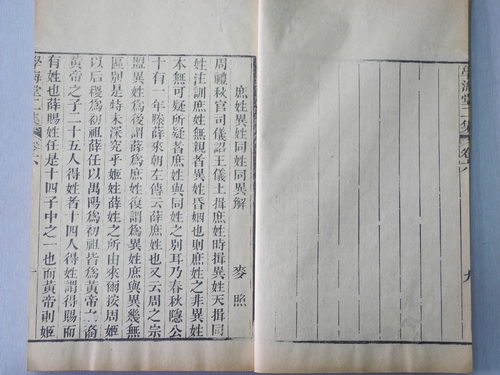 學海堂二集
卷六
九
庶姓異姓同姓同異解
麥照
周禮秋官司儀詔王儀土揖庶姓時揖異姓天揖同
姓注訓庶姓無親者異姓昏姻也則庶姓之非異姓
本無可疑所疑者庶姓與同姓之別耳乃春秋隱公
十有一年滕薛來朝左傳云薛庶姓也又云周之宗
盟異姓爲後謂薛爲庶姓復謂爲異姓庶與異幾無
區別是特未深究乎姬姓薛姓之所由來爾按周姬
以后稷爲初祖薛任以禺陽爲初祖皆爲黃帝之裔
黃帝之子二十五人得姓者十四人得姓謂得賜而
有姓也薛賜姓任是十四子中之一也而黃帝則姬
學海堂二集
卷六
一